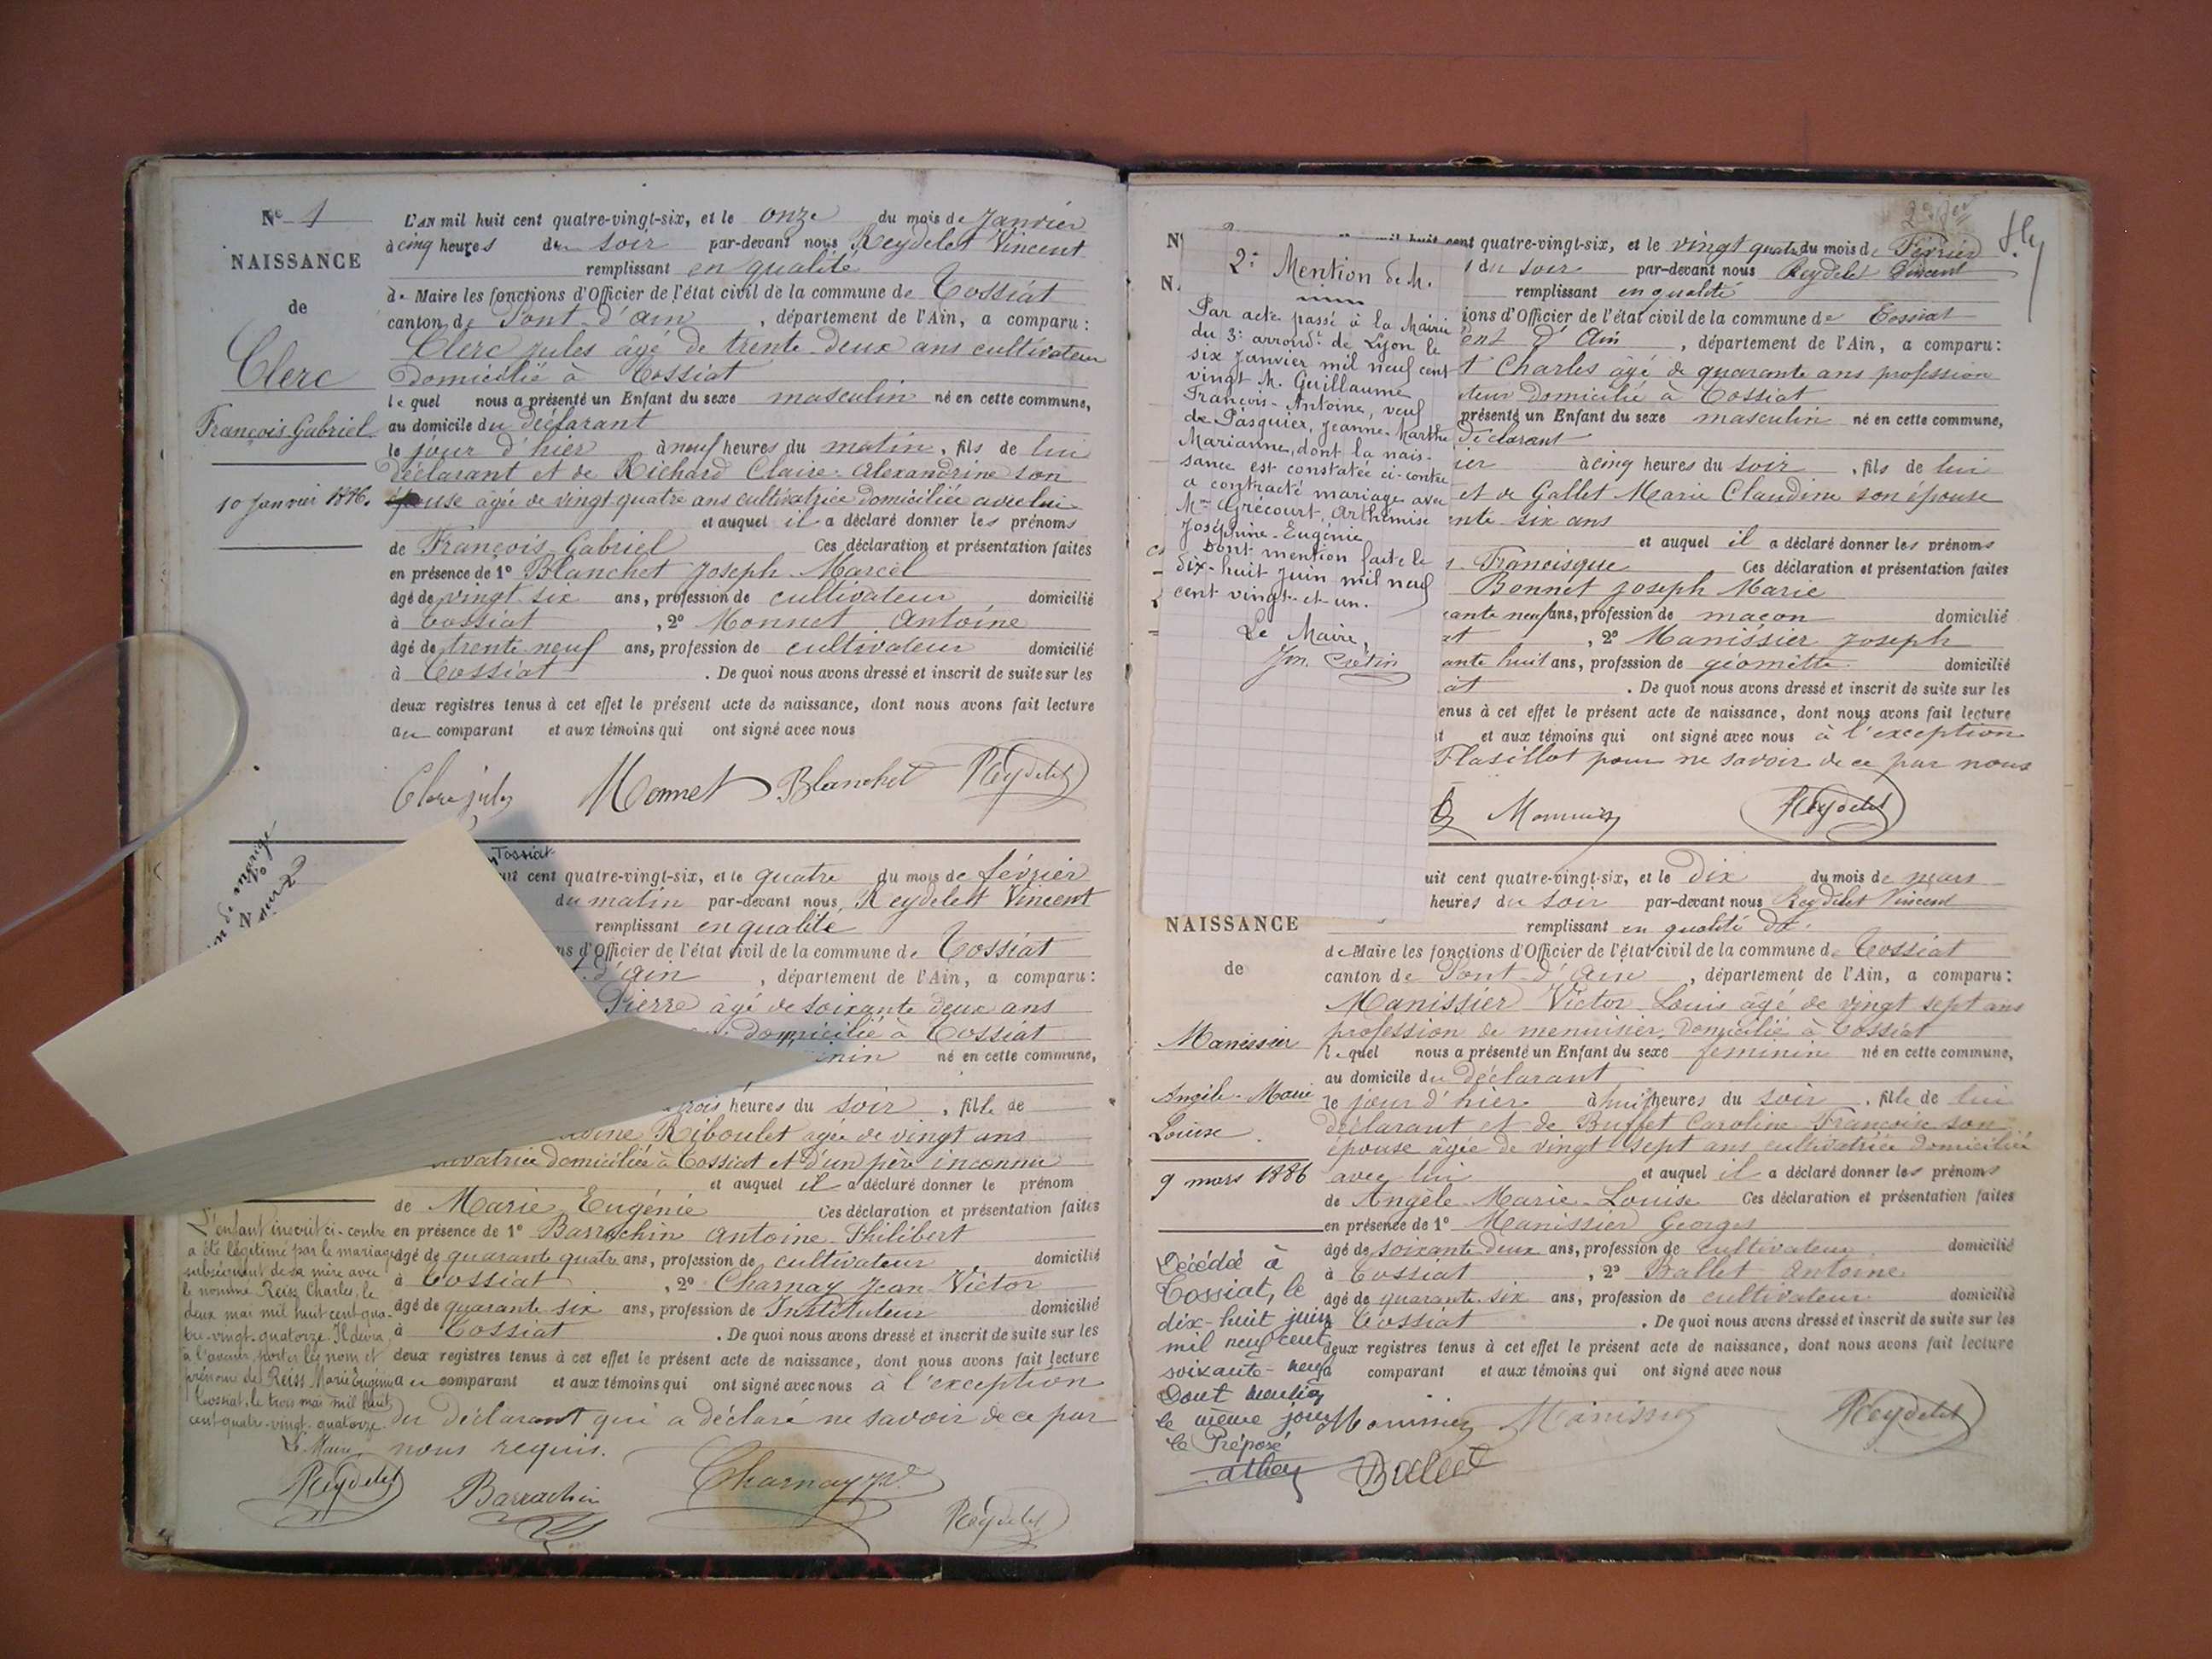 No 1
NAISSANCE
de
Clerc
François Gabriel
10 Janvier 1886.
L'AN mil huit cent quatre-vingt-six, et le onze du mois de Janvier
à cinq heures du soir par-devant nous Reydelet Vincent
remplissant en qualité
de Maire les fonctions d'Officier de l'état civil de la commune de Tossiat
canton de Pont d'ain, département de l'Ain, a comparu :
Clerc Jules âgé de trente deux ans cultivateur
domicilié à Tossiat
lequel nous a présenté un Enfant du sexe masculin né en cette commune,
au domicile du déclarant
le jour d'hier à neuf heures du matin, fils de lui
déclarant et de Richard Claire Alexandrine son
épouse âgée de vingt quatre ans cultivatrice domiciliée avec lui
et auquel il a déclaré donner les prénoms
de François Gabriel Ces déclaration et présentation faites
en présence de 1° Blanchet Joseph Marcel
âgé de vingt six ans, profession de cultivateur domicilié
à Tossiat, 2° Monnet Antoine
âgé de trente neuf ans, profession de cultivateur domicilié
à Tossiat. De quoi nous avons dressé et inscrit de suite sur les
deux registres tenus à cet effet le présent acte de naissance, dont nous avons fait lecture
au comparant et aux témoins qui ont signé avec nous
Clerc jules Monnet Blanchet Reydelet
Tossiat
cent quatre-vingt-six, et le quatre du mois de février
du matin par-devant nous Reydelet Vincent
remplissant en qualité
d'Officier de l'état civil de la commune de Tossiat
d'ain, département de l'Ain, a comparu :
Pierre âgé de soixante deux ans
domicilié à Tossiat
né en cette commune,
trois heures du soir, fille de
Riboulet agée de vingt ans
domiciliée à Tossiat et d'un père inconnu
et auquel il a déclaré donner le prénom
de Marie Eugénie Ces déclaration et présentation faites
en présence de 1° Barrachin Antoine Philibert
âgé de quarante quatre ans, profession de cultivateur domicilié
à Tossiat, 2° Charnay Jean Victor
âgé de quarante six ans, profession de Instituteur domicilié
à Tossiat. De quoi nous avons dressé et inscrit de suite sur les
deux registres tenus à cet effet le présent acte de naissance, dont nous avons fait lecture
au comparant et aux témoins qui ont signé avec nous à l'exception
du déclarant qui a déclaré ne savoir de ce par
nous requis.
L'enfant inscrit ci-contre
a été légitimé par le mariage
subséquent de sa mère avec
le nommé Reiss Charles, le
deux mai mil huit cent qua-
tre-vingt-quatorze. Il devra
à l'avenir porter les nom et
prénoms de Reiss Marie Eugénie
Tossiat, le trois mai mil huit
cent quatre-vingt-quatorze.
Le Maire
Reydelet Barrachin Charnay Reydelet
2:
Mention de M.
Par acte passé à la Mairie
du 3: arrondt de Lyon le
six Janvier mil neuf cent
vingt M. Guillaume
François-Antoine, veuf
de Pasquier, Jeanne-Marthe
Marianne, dont la nais-
sance est constatée ci-contre
a contracté mariage avec
Mme Grécourt, Arthémise
Joséphine-Eugénie
Dont mention faite le
dix-huit Juin mil neuf
cent vingt-et-un.
Le Maire,
Jm. Crétin
cent quatre-vingt-six, et le vingt quatre du mois de Février
du soir par-devant nous Reydelet Vincent
remplissant en qualité
d'Officier de l'état civil de la commune de Tossiat
d'Ain, département de l'Ain, a comparu :
Charles âgé de quarante ans profession
domicilié à Tossiat
présenté un Enfant du sexe masculin né en cette commune,
déclarant
à cinq heures du soir, fils de lui
et de Gallet Marie Claudine son épouse
six ans
et auquel il a déclaré donner les prénoms
Francisque Ces déclaration et présentation faites
Bonnet Joseph Marie
neuf ans, profession de maçon domicilié
, 2° Manissier Joseph
huit ans, profession de géomètre domicilié
. De quoi nous avons dressé et inscrit de suite sur les
tenus à cet effet le présent acte de naissance, dont nous avons fait lecture
et aux témoins qui ont signé avec nous à l'exception
Flasillot pour ne savoir de ce par nous
Reydelet
NAISSANCE
de
Manissier
Angèle-Marie
Louise
9 mars 1886
cent quatre-vingt-six, et le Dix du mois de mars
heures du soir par-devant nous Reydelet Vincent
remplissant en qualité de
de Maire les fonctions d'Officier de l'état civil de la commune de Tossiat
canton de Pont d'ain, département de l'Ain, a comparu :
Manissier Victor Louis âgé de vingt sept ans
profession de menuisier domicilié à Tossiat
lequel nous a présenté un Enfant du sexe féminin né en cette commune,
au domicile du déclarant
le jour d'hier à huit heures du soir, fille de lui
déclarant et de Buffet Caroline Françoise son
épouse âgée de vingt sept ans cultivatrice domiciliée
avec lui et auquel il a déclaré donner les prénoms
de Angèle Marie-Louise Ces déclaration et présentation faites
en présence de 1° Manissier Georges
âgé de soixante deux ans, profession de cultivateur domicilié
à Tossiat, 2° Ballet Antoine
âgé de quarante six ans, profession de cultivateur domicilié
à Tossiat. De quoi nous avons dressé et inscrit de suite sur les
deux registres tenus à cet effet le présent acte de naissance, dont nous avons fait lecture
comparant et aux témoins qui ont signé avec nous
Décédée à
Tossiat, le
dix-huit juin
mil neuf cent
soixante-neuf
Dont mention
le même jour
le Préposé
Manissier Reydelet
Ballet